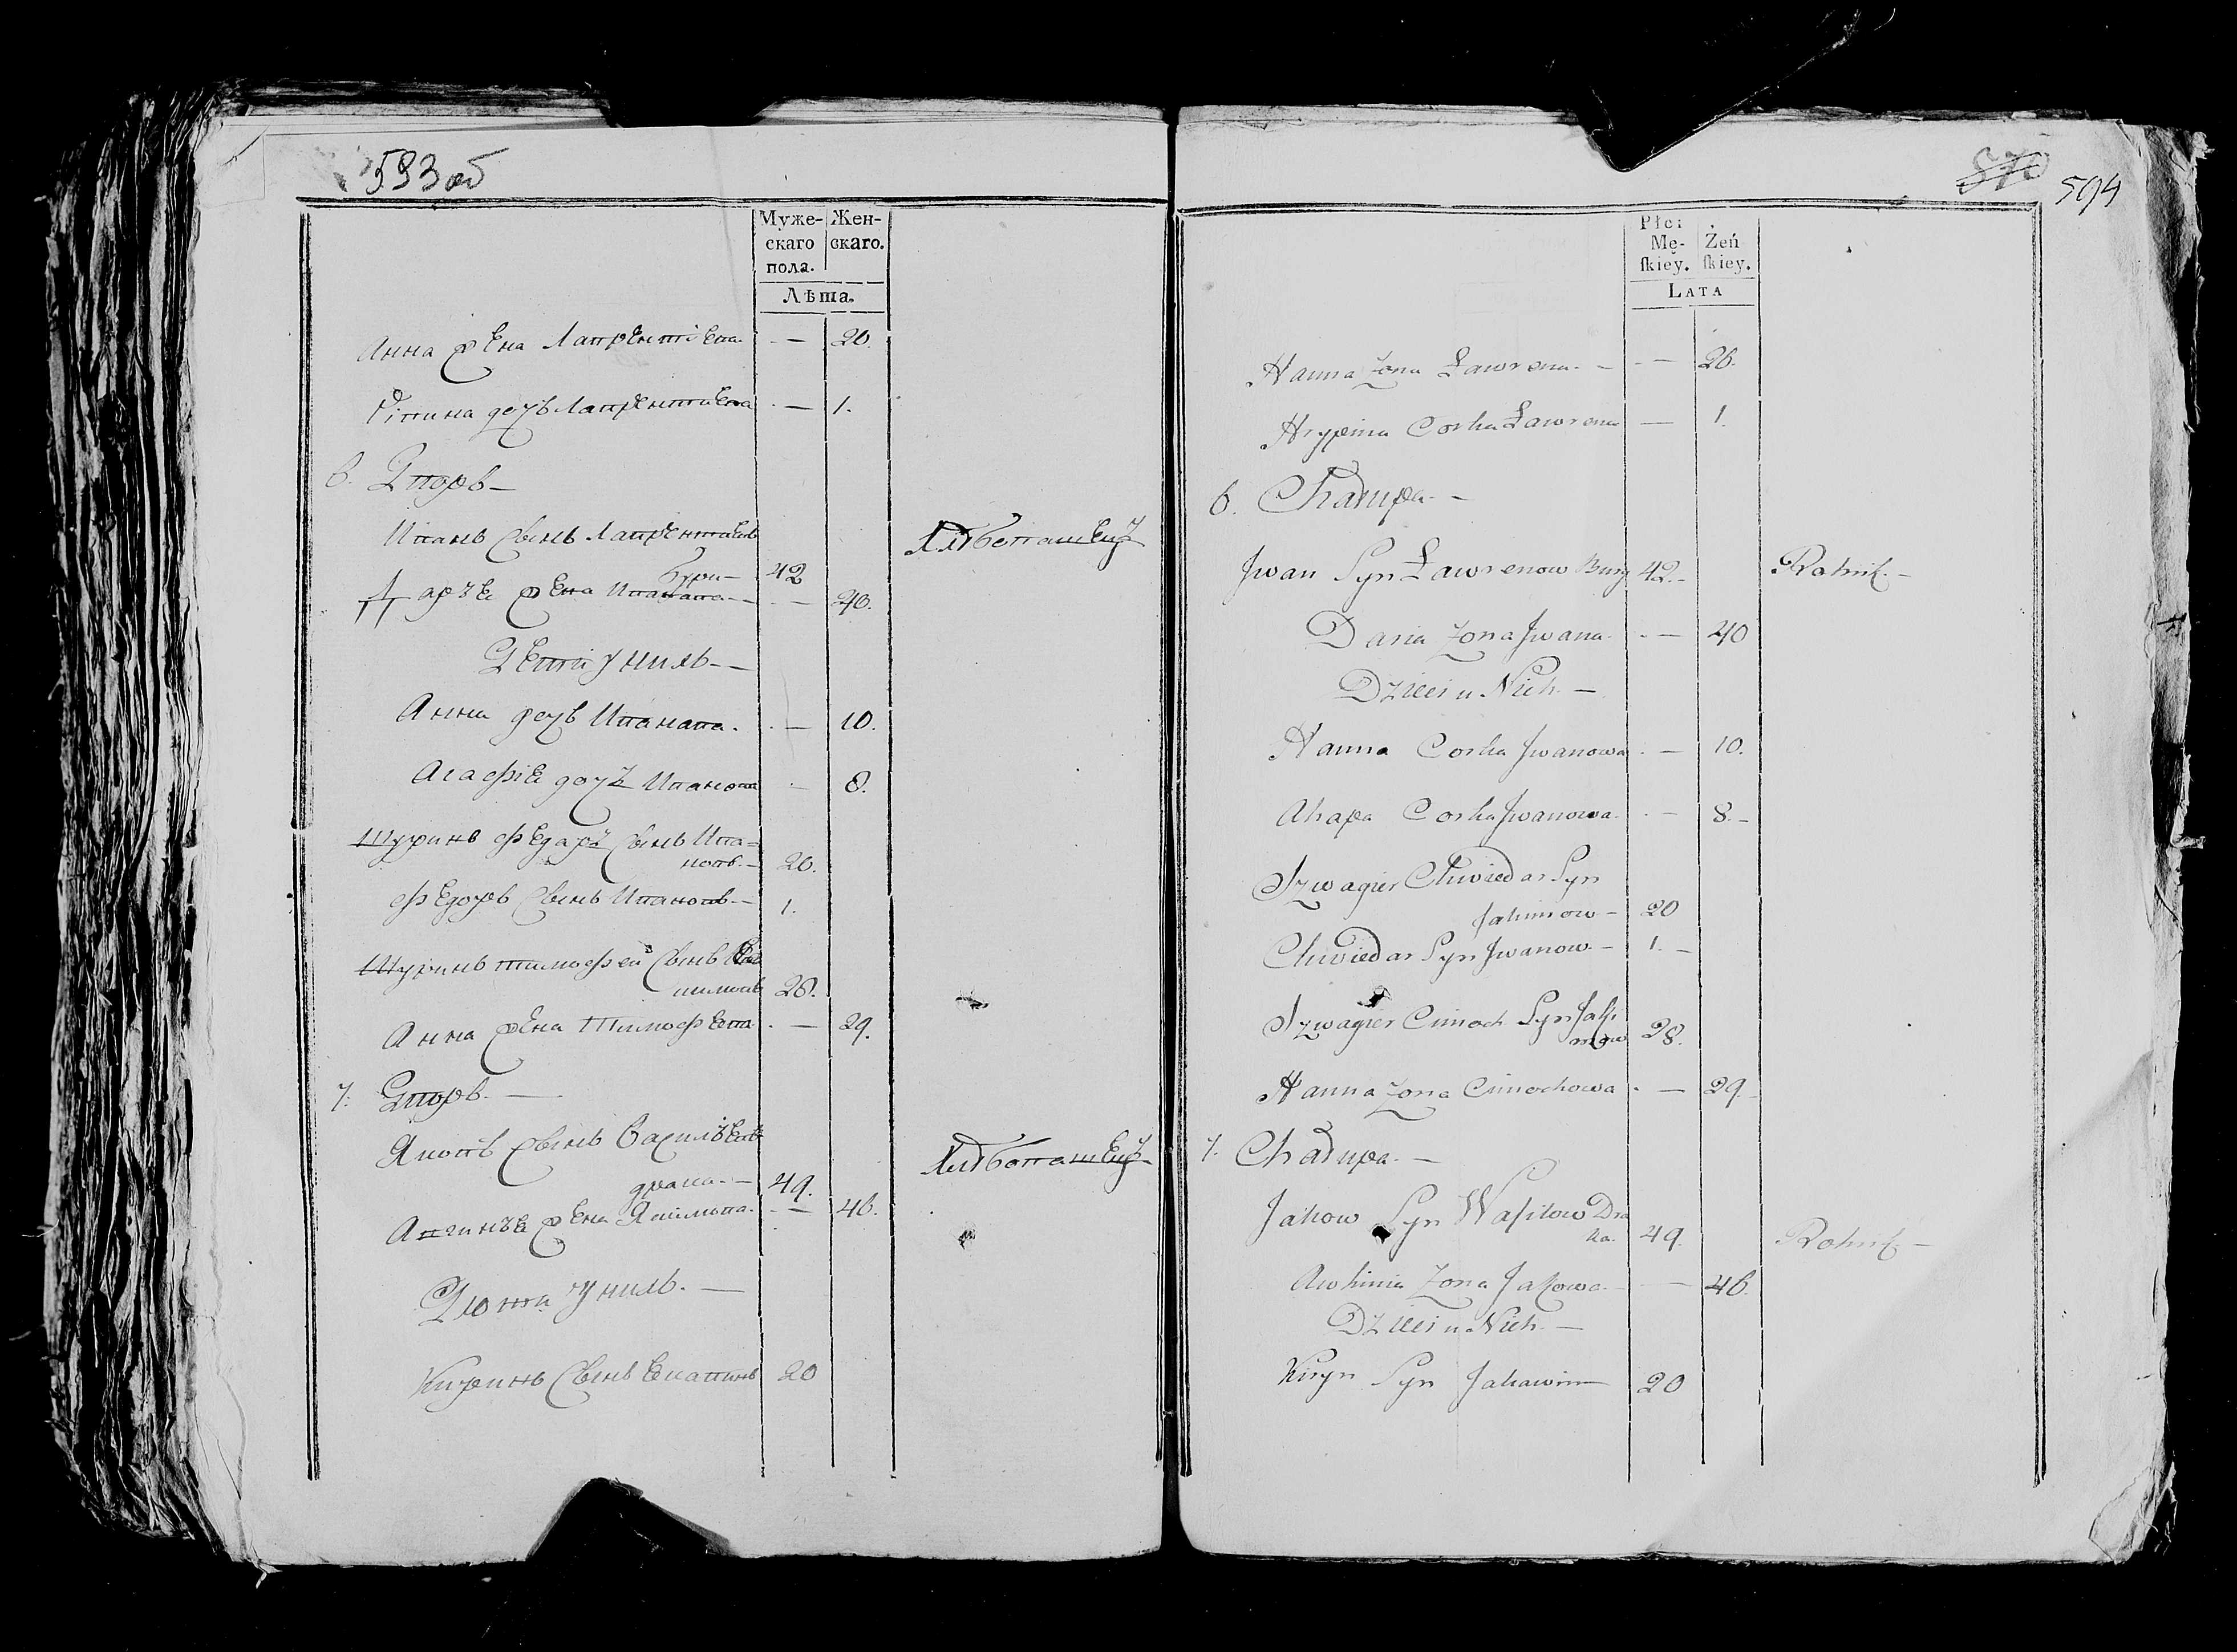 593 об
Муже- Жен-
скаго скаго.
пола.
Лѣта.
Анна жена Лаврентіева — 26.
Гріпина дочь Лаврентиева — 1.
6. Дворъ —
Иванъ сынъ Лаврентиевъ
Бури — 42 Хлѣбопашецъ
Дарья жена Ивана — 40.
Дѣти у нихъ —
Анна дочь Иванава. — 10.
Агафія дочь Иванова — 8.
Шуринъ Федаръ сынъ
20.
Федоръ сынъ Ивановъ — 1.
Шуринъ Тимофей сынъ
28.
Анна жена Тимофеева — 29.
7. Дворъ. —
Яковъ сынъ Васильевъ Хлѣбопашецъ
драка. — 49.
жена — 46.
у нихъ. —
сынъ 20
870 594
Płci
Mę- Żeń
skiey. skiey.
Lata
Hanna Zona Ławrena — — 26.
Hrypina Corka Ławrena — 1.
6. Chałupa —
Jwan Syn Ławrenow Bury 42. — Rolnik. —
Daria Zona Jwana — 40
Dzieci u Nich —
Hanna Corka Jwanowa — 10.
Ahapa Corka Jwanowa — 8. —
Szwagier Chwiedar Syn
Jakimow — 20
Chwiedar Syn Jwanow — 1. —
Szwagier Cimoch Syn Jaki
mow 28.
Hanna Zona Cimochowa — 29.
7. Chałupa. —
Jakow Syn Wasilow Dra
ka. 49. Rolnik —
Awhinia Zona Jakowa — 46.
Dzieci u Nich —
Kiryn Syn Jakawin — 20